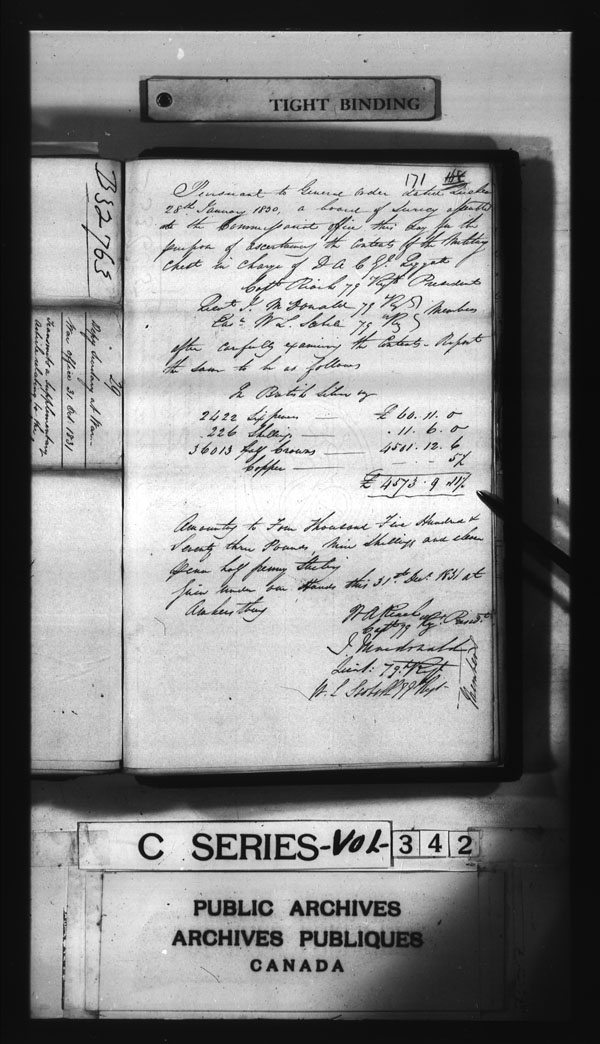 TIGHT BINDING
171
B32765
29
Depy Secretary at War.
War office 31. Oct. 1831
Transmits a Supplementary
Article relating to the
Pursuant to General Order dated Quebec
28th January 1830, a board of Survey assembled
at the Commissariat office this day for the
purpose of Ascertaining the contents of the Military
Chest in Charge of D A C Gl
Captn Riach 79 Regt President
Lieut J. McDonald 79 Regt } Members
Ensn W L 79 Regt
after carefully examining the Contents - Report
the same to be as follows
In British Silver
2422 Six pences — £ 60. 11. 0
226 Shillings — . 11. 6. 0
36013 Half Crowns — 4501. 12. 6
Copper — - - 5½
£ 4573. 9. 11½
Amounting to Four Thousand Five Hundred &
Seventy three Pounds, Nine Shillings and eleven
Pence half penny Sterling
Given Under our Hands this 31st Decr 1831 at
Amherstburg
W A Riach
Captn 79 Regt Presidt
J. Macdonald
Lieut: 79 Regt
W. L 79 Regt
Members
C SERIES-VOL-342
PUBLIC ARCHIVES
ARCHIVES PUBLIQUES
CANADA